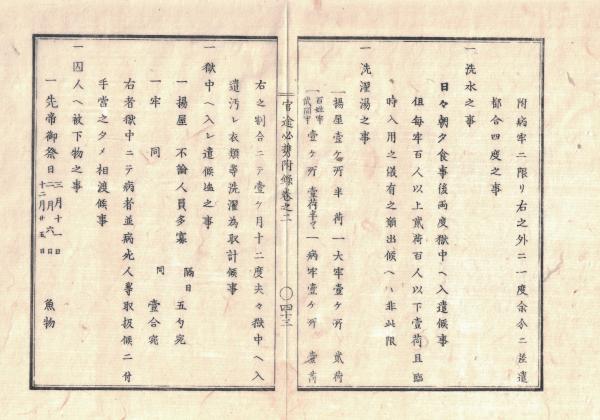 附病牢ニ限リ右之外ニ一度余分ニ差遣
都合四度之事
一 洗水之事
日々朝夕食事後両度獄中ヘ入遣候事
但毎牢百人以上貮荷百人以下壹荷且臨
時入用之儀有之願出候ヘハ非此限
一 洗濯湯之事
一揚屋壹ケ所半荷 一大牢壹ケ所 貮荷
一百姓牢貮間牢壹ケ所 壹荷半ツヽ 一病牢壹ケ所 壹荷
官途必携附録巻之二 〇四十三
右之割合ニテ壹ケ月十二度夫々獄中ヘ入
遣汚レ衣類等洗濯為取計候事
一 獄中ヘ入レ遣候塩之事
一揚屋 不論人員多寡 隔日 五勺宛
一牢 同 同 壹合宛
右者獄中ニテ病者並病死人等取扱候ニ付
手当之タメ相渡候事
一 囚人ヘ被下物之事
一 先帝御祭日 三月十一日 二月六日 十二月廿五日 魚物